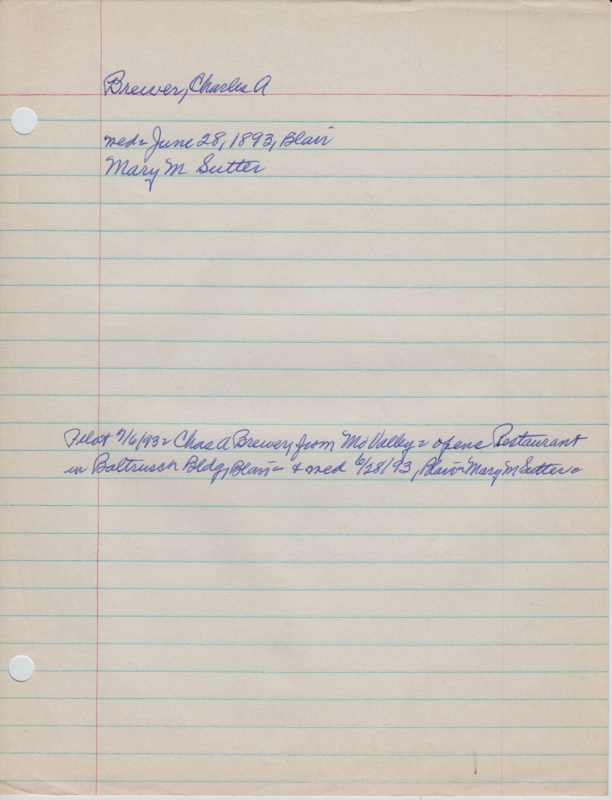 Brewer, Charles A
med - June 28, 1893, Blair
Mary M Sutter
Pilot 7/6/93 - Chas A Brewer, from Mo Valley - opens Restaurant
in Baltrusch Bldg, Blair - + med 6/28/93, Blair - Mary M Sutter -